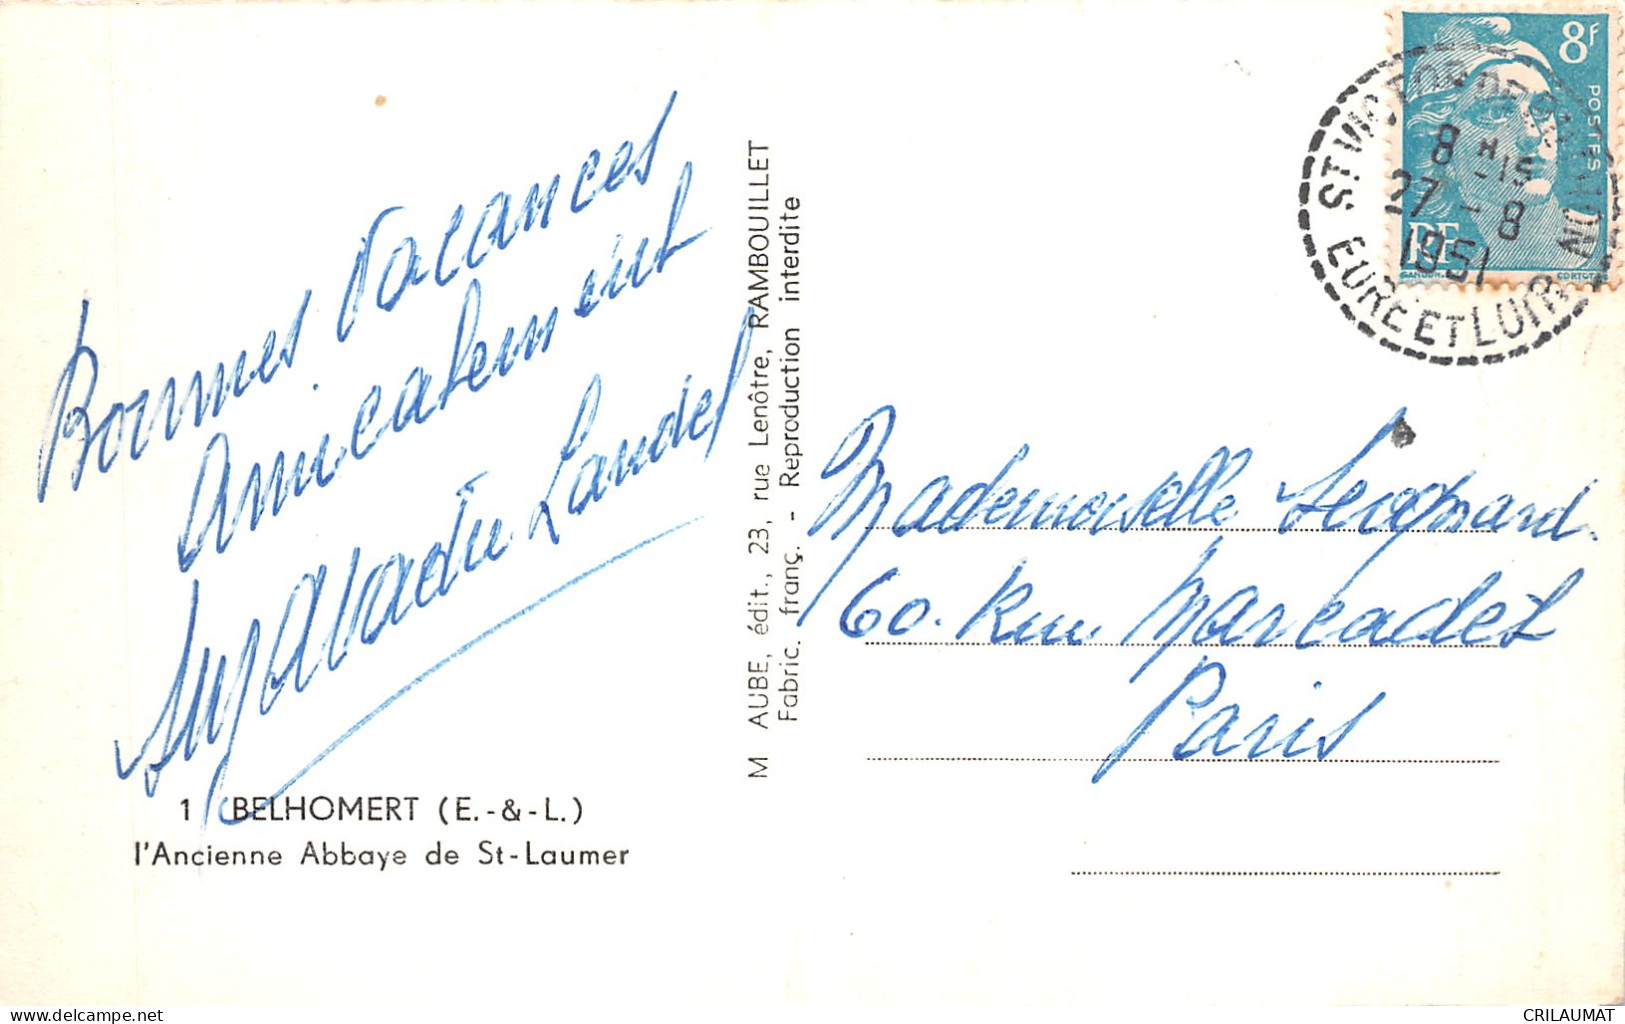 Bonnes Vacances
Amicalement
Landel
1 BELHOMERT (E.-&-L.)
l'Ancienne Abbaye de St-Laumer
M AUBE, édit., 23, rue Lenôtre, RAMBOUILLET
Fabric. franç. - Reproduction interdite
8F
POSTES
RF
GANDON
CORTOT
ST VICTOR DE BUTHON
8 H 15
27 - 8
1951
EURE ET LOIR
Mademoiselle
60. Rue Marcadet
Paris
CRILAUMAT